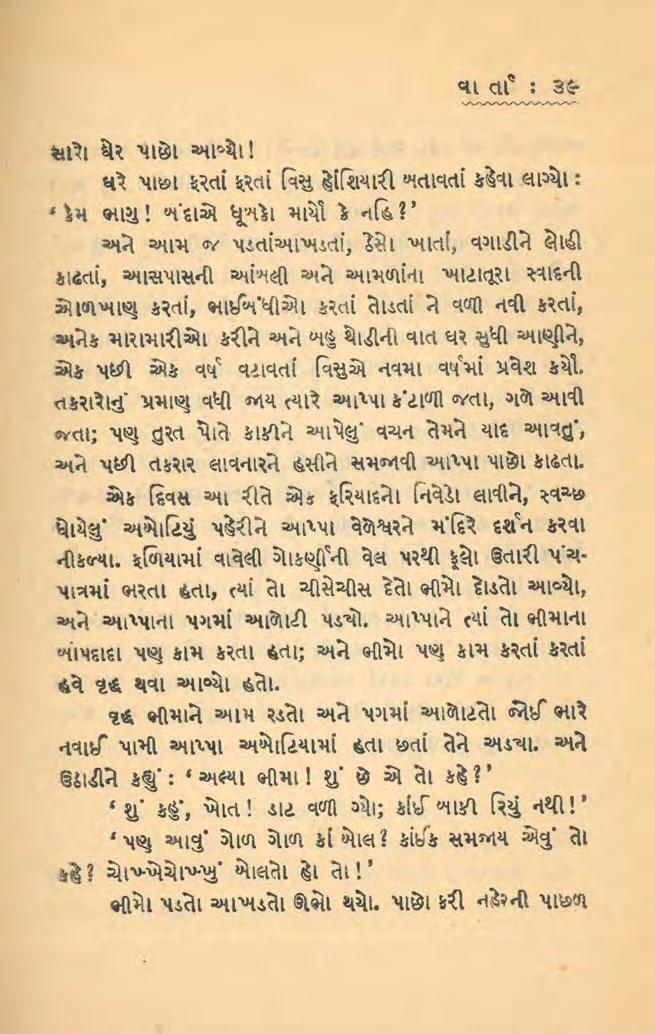 વા ર્તા : ૩૯
સારો ઘેર પાછો આવ્યો!
ઘરે પાછા ફરતાં ફરતાં વિસુ હોંશિયારી બતાવતાં કહેવા લાગ્યો :
‘ કેમ ભાગુ! બંદાએ ધૂબકો માર્યો કે નહિ ? ’
અને આમ જ પડતાંઆખડતાં, ઠેસો ખાતાં, વગાડીને લોહી
કાઢતાં, આસપાસની આંબલી અને આમળાંના ખાટાતૂરા સ્વાદની
ઓળખાણ કરતાં, ભાઈબંધીઓ કરતાં તોડતાં ને વળી નવી કરતાં,
અનેક મારામારીઓ કરીને અને બહુ થોડીની વાત ઘર સુધી આણીને,
એક પછી એક વર્ષ વટાવતાં વિસુએ નવમા વર્ષમાં પ્રવેશ કર્યો.
તકરારોનું પ્રમાણ વધી જાય ત્યારે આપ્પા કંટાળી જતા, ગળે આવી
જતા; પણ તુરત પોતે કાકીને આપેલું વચન તેમને યાદ આવતું,
અને પછી તકરાર લાવનારને હસીને સમજાવી આપ્પા પાછો કાઢતા.
એક દિવસ આ રીતે એક ફરિયાદનો નિવેડો લાવીને, સ્વચ્છ
ધોયેલું અબોટિયું પહેરીને આપ્પા વેળેશ્વરને મંદિરે દર્શન કરવા
નીકળ્યા. ફળિયામાં વાવેલી ગોકર્ણીની વેલ પરથી ફૂલો ઉતારી પંચ-
પાત્રમાં ભરતા હતા, ત્યાં તો ચીસેચીસ દેતો ભીમો દોડતો આવ્યો,
અને આપ્પાના પગમાં આળોટી પડ્યો. આપ્પાને ત્યાં તો ભીમાના
બાપદાદા પણ કામ કરતા હતા; અને ભીમો પણ કામ કરતાં કરતાં
હવે વૃદ્ધ થવા આવ્યો હતો.
વૃદ્ધ ભીમાને આમ રડતો અને પગમાં આળોટતો જોઈ ભારે
નવાઈ પામી આપ્પા અબોટિયામાં હતા છતાં તેને અડચા. અને
ઉઠાડીને કહ્યું : ‘ અલ્યા ભીમા! શું છે એ તો કહે ? ’
‘ શું કહું, ખોત! ડાટ વળી ગ્યો; કાંઈ બાકી રિયું નથી! ’
‘ પણ આવું ગોળ ગોળ કાં બોલ? કાંઈક સમજાય એવું તો
કહે ? ચોખ્ખેચોખ્ખું બોલતો હો તો! ’
ભીમો પડતો આખડતો ઊભો થયો. પાછો ફરી નહેરની પાછળ